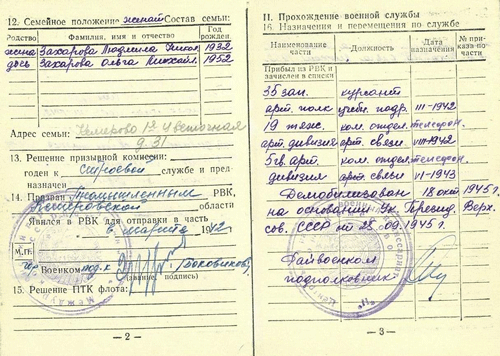 12. Семейное положение женат Состав семьи:
Родство Фамилия, имя и отчество Год рожден
жена Захарова Людмила Никол. 1932
дочь Захарова Ольга Михайл. 1952
Адрес семьи: Кемерово 1я Цветочная
д. 31
13. Решение призывной комиссии:
годен к строевой службе и пред-
назначен
14. Призван Промышленным РВК,
Кемеровской области
Явился в РВК для отправки в часть
в марте 1942
М.П.
Военком
(звание, подпись)
15. Решение ПТК флота:
— 2 —
II. Прохождение военной службы
16. Назначения и перемещения по службе
Наименование части Должность Дата назначения № приказа по части
Прибыл из РВК и
зачислен в списки
35 зап. курсант
арт. полк учебн. подр. III-1942
19 тяж. ком. отдел. телефон.
арт. дивизия арт. связи
5 гв. арт. ком. отдел. телефон.
дивизия арт. связи VI-1943
Демобилизован 18 окт 1945 г.
на основании Ук. Презид. Верх.
сов. СССР от 25.09.1945 г.
Райвоенком
подполковник
— 3 —